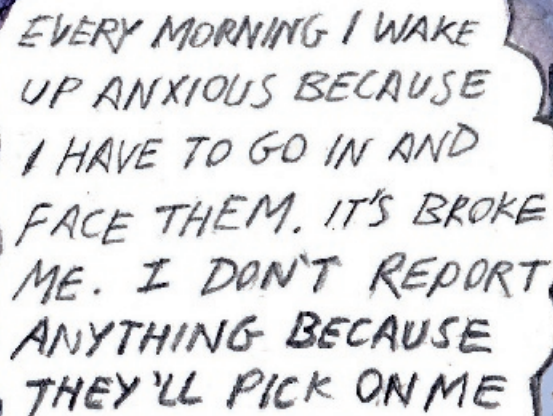 EVERY MORNING I WAKE
UP ANXIOUS BECAUSE
I HAVE TO GO IN AND
FACE THEM. IT'S BROKE
ME. I DON'T REPORT
ANYTHING BECAUSE
THEY'LL PICK ON ME